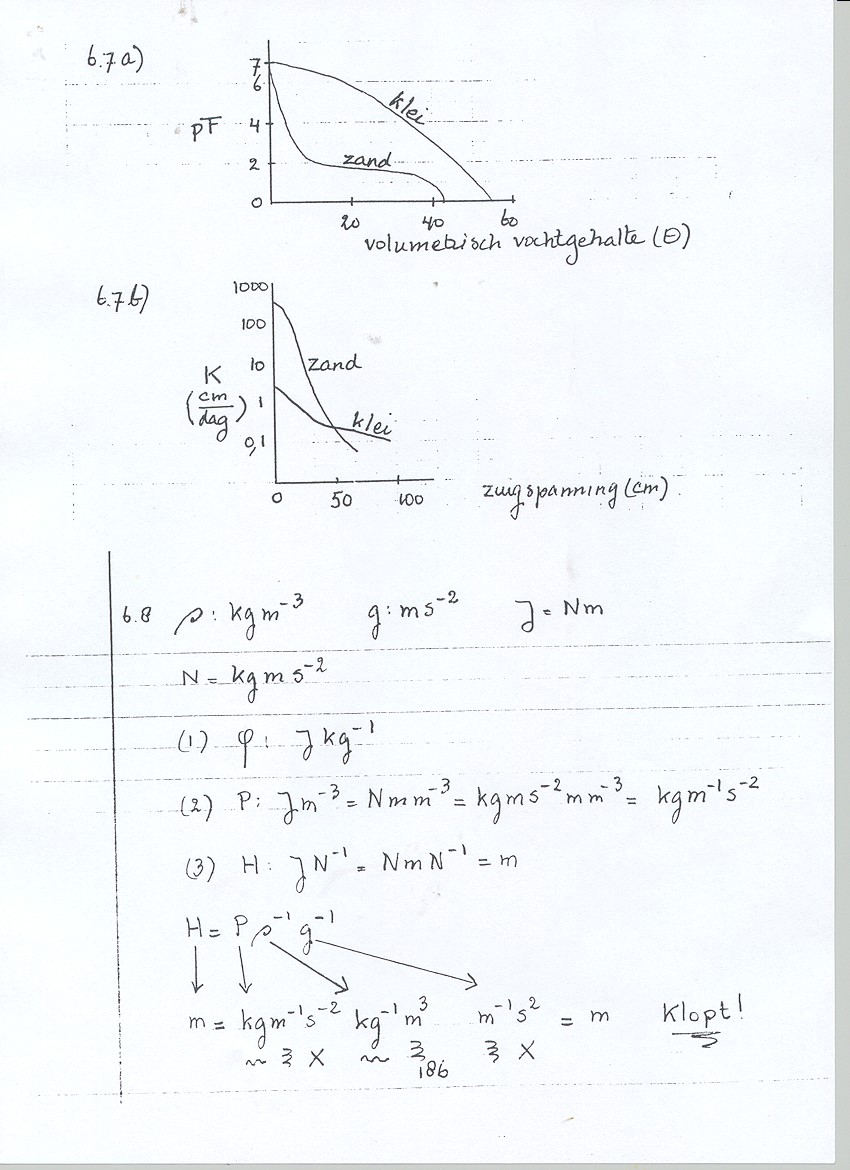 6.7a)
7
6
pF
4
2
0
klei
zand
20 40 60
volumetrisch vochtgehalte (θ)
6.7b)
1000
100
10
K
(cm/dag)
1
0,1
zand
klei
0 50 100
zuigspanning (cm)
6.8 ρ: kgm⁻³ g: ms⁻² J = Nm
N = kgms⁻²
(1) φ: Jkg⁻¹
(2) P: Jm⁻³ = Nmm⁻³ = kgms⁻²mm⁻³ = kgm⁻¹s⁻²
(3) H: JN⁻¹ = NmN⁻¹ = m
H = Pρ⁻¹g⁻¹
m = kgm⁻¹s⁻² kg⁻¹m³ m⁻¹s² = m Klopt!
186